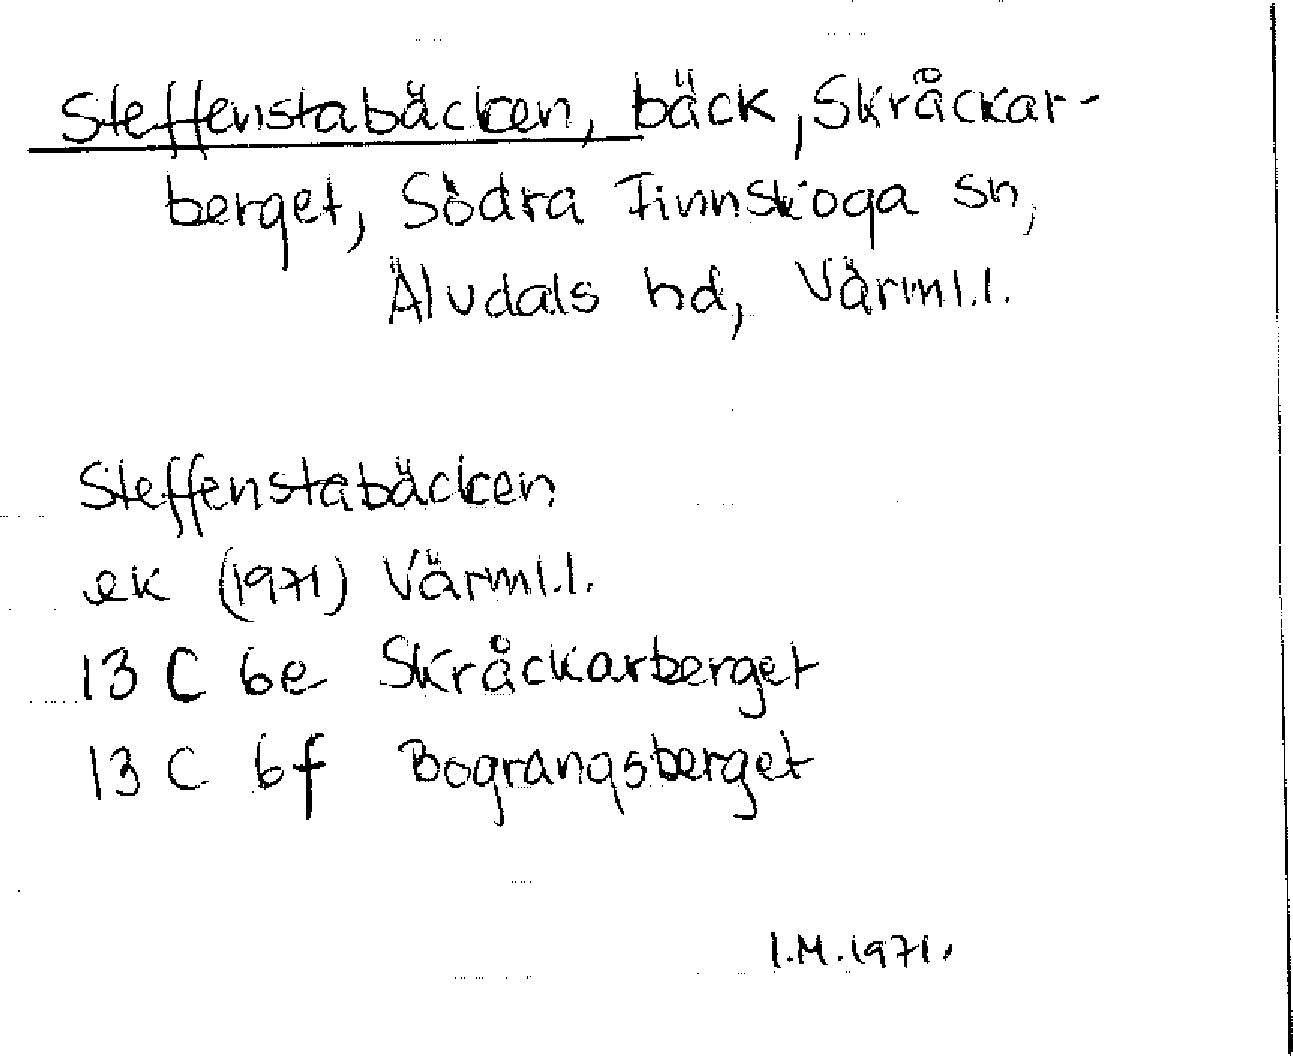 Steffenstabäcken, bäck, Skråckar-
berget, Södra Finnskoga sn,
Älvdals hd, Värml.l.
Steffenstabäcken
ek (1971) Värml.l.
13 C 6e Skråckarberget
13 C 6f Bograngsberget
I.M. 1971.